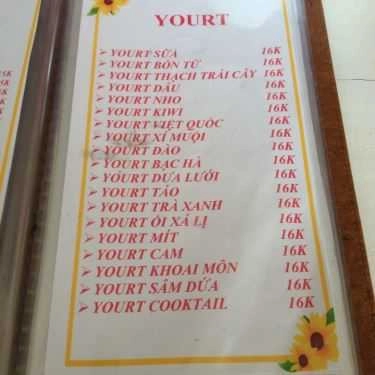 YOURT
YOURT SỮA 16K
YOURT BÓN TỬ 16K
YOURT THẠCH TRÁI CÂY 16K
YOURT DÂU 16K
YOURT NHO 16K
YOURT KIWI 16K
YOURT VIỆT QUỐC 16K
YOURT XÍ MUỘI 16K
YOURT ĐÀO 16K
YOURT BẠC HÀ 16K
YOURT DƯA LƯỚI 16K
YOURT TÁO 16K
YOURT TRÀ XANH 16K
YOURT ỔI XÁ LỊ 16K
YOURT MÍT 16K
YOURT CAM 16K
YOURT KHOAI MÔN 16K
YOURT SÂM DỨA 16K
YOURT COOKTAIL 16K